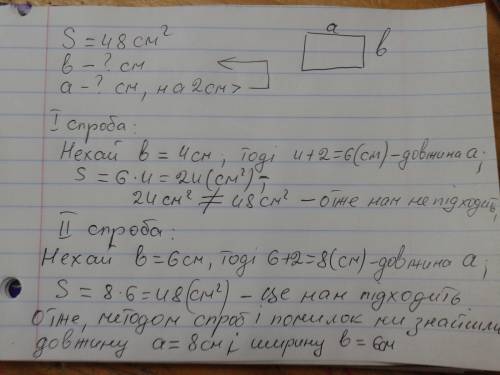 S = 48 см²
a
в
в – ? см
a – ? см, на 2см >
I спроба:
Нехай в = 4см; тоді 4+2=6(см) – довжина a;
S = 6·4=24(см²);
24 см² ≠ 48 см² – отже нам не підходить,
II спроба:
Нехай в=6см, тоді 6+2=8(см) – довжина a;
S = 8·6=48(см²) – це нам підходить
Отже, методом спроб і помилок ми знайшли
довжину a=8см; ширину в=6см